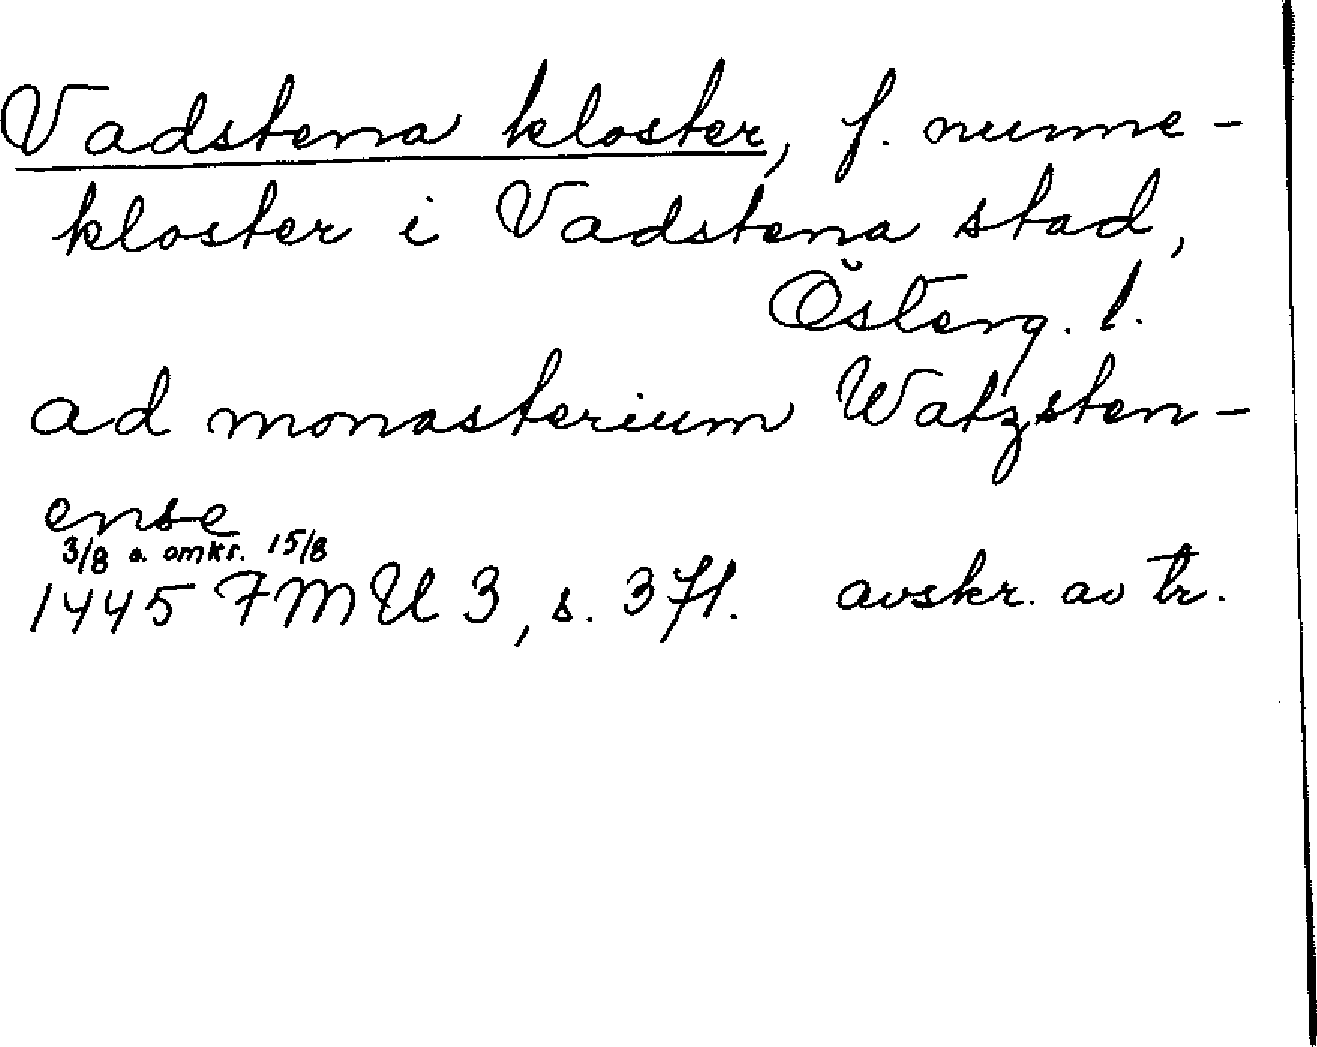 Vadstena kloster, f. nunne-
kloster i Vadstena stad,
Österg. l.
ad monasterium Watzsten-
ense
3/8 o. omkr. 15/8
1445 FMU 3, s. 371. avskr. av tr.